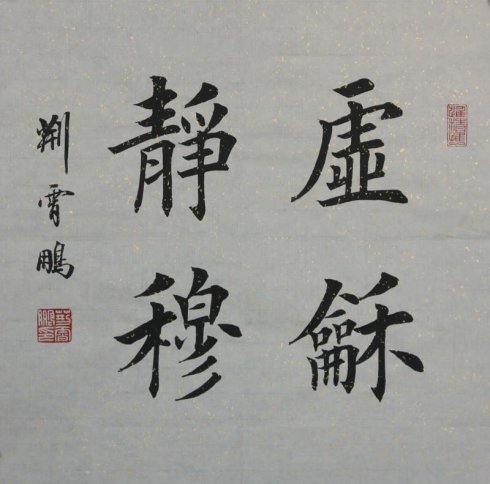 虛龢
靜穆
荆霄鵬